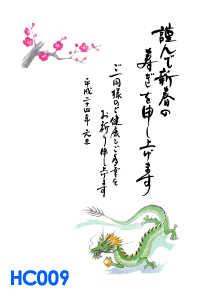 謹んで新春の
寿ぎを申し上げます
ご一同様のご健康とご多幸を
お祈り申し上げます
平成二十四年 元旦
HC009